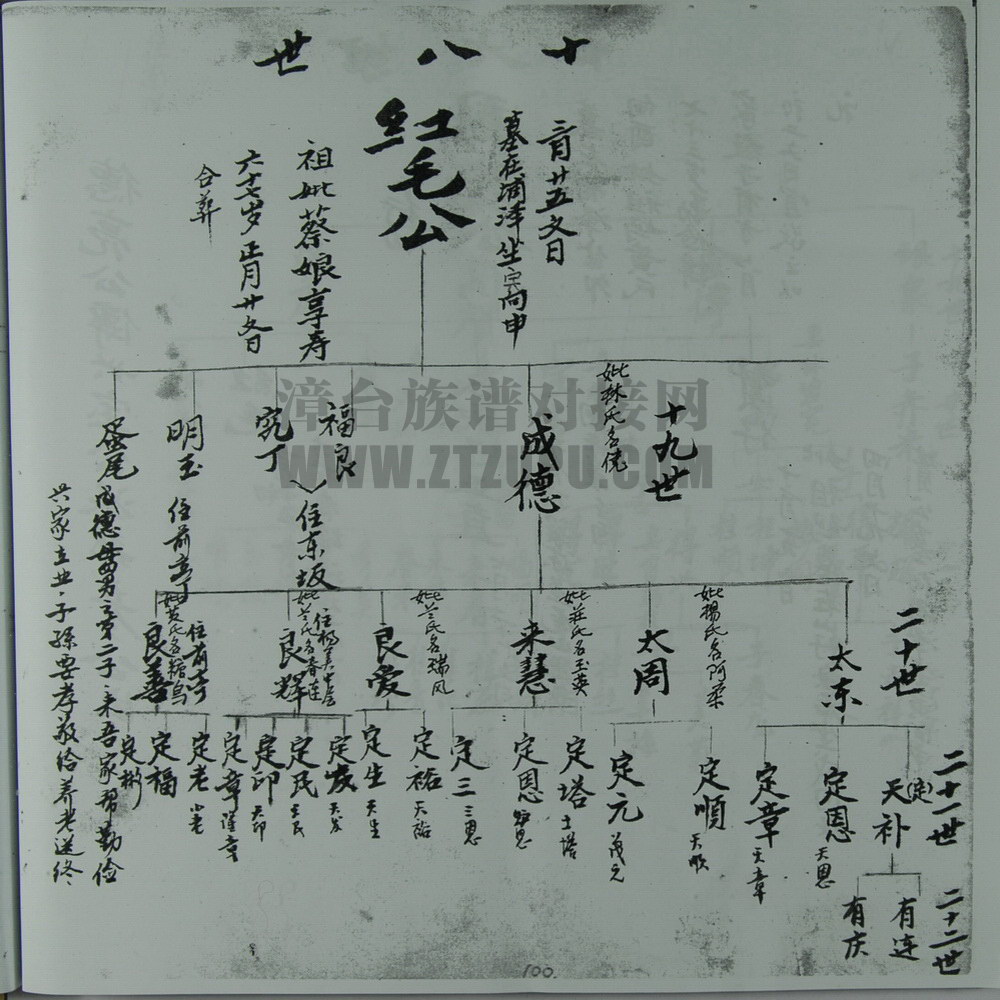 十八世
二月廿五文日
墓在埔泽坐寅向申
红毛公
祖妣蔡娘享寿
六十七岁正月廿文日
合葬
漳台族谱对接网
WWW.ZTZUPU.COM
十九世
妣林氏名侥
成德
福良
完丁
住东坂
明玉 住前亭
蛋尾 成德母舅之第二子来吾家帮勤俭
共家立业,子孫要孝敬给养老送终
二十世
太东
妣楊氏名阿桑
太周
妣莊氏名玉英
来慧
妣兰氏名瑞凤
良爱
妣兰氏名春莲
良輝
住前亭
妣黄氏名糖乌
良善
二十一世
天(定)补
定恩 天恩
定章 天章
定順 天順
定元 茂元
定塔 土塔
定恩
定三 三恩
定祐 天祐
定生 天生
定发 天发
定民
定印 天印
定章
定老
定福
定彬
二十二世
有连
有庆
100